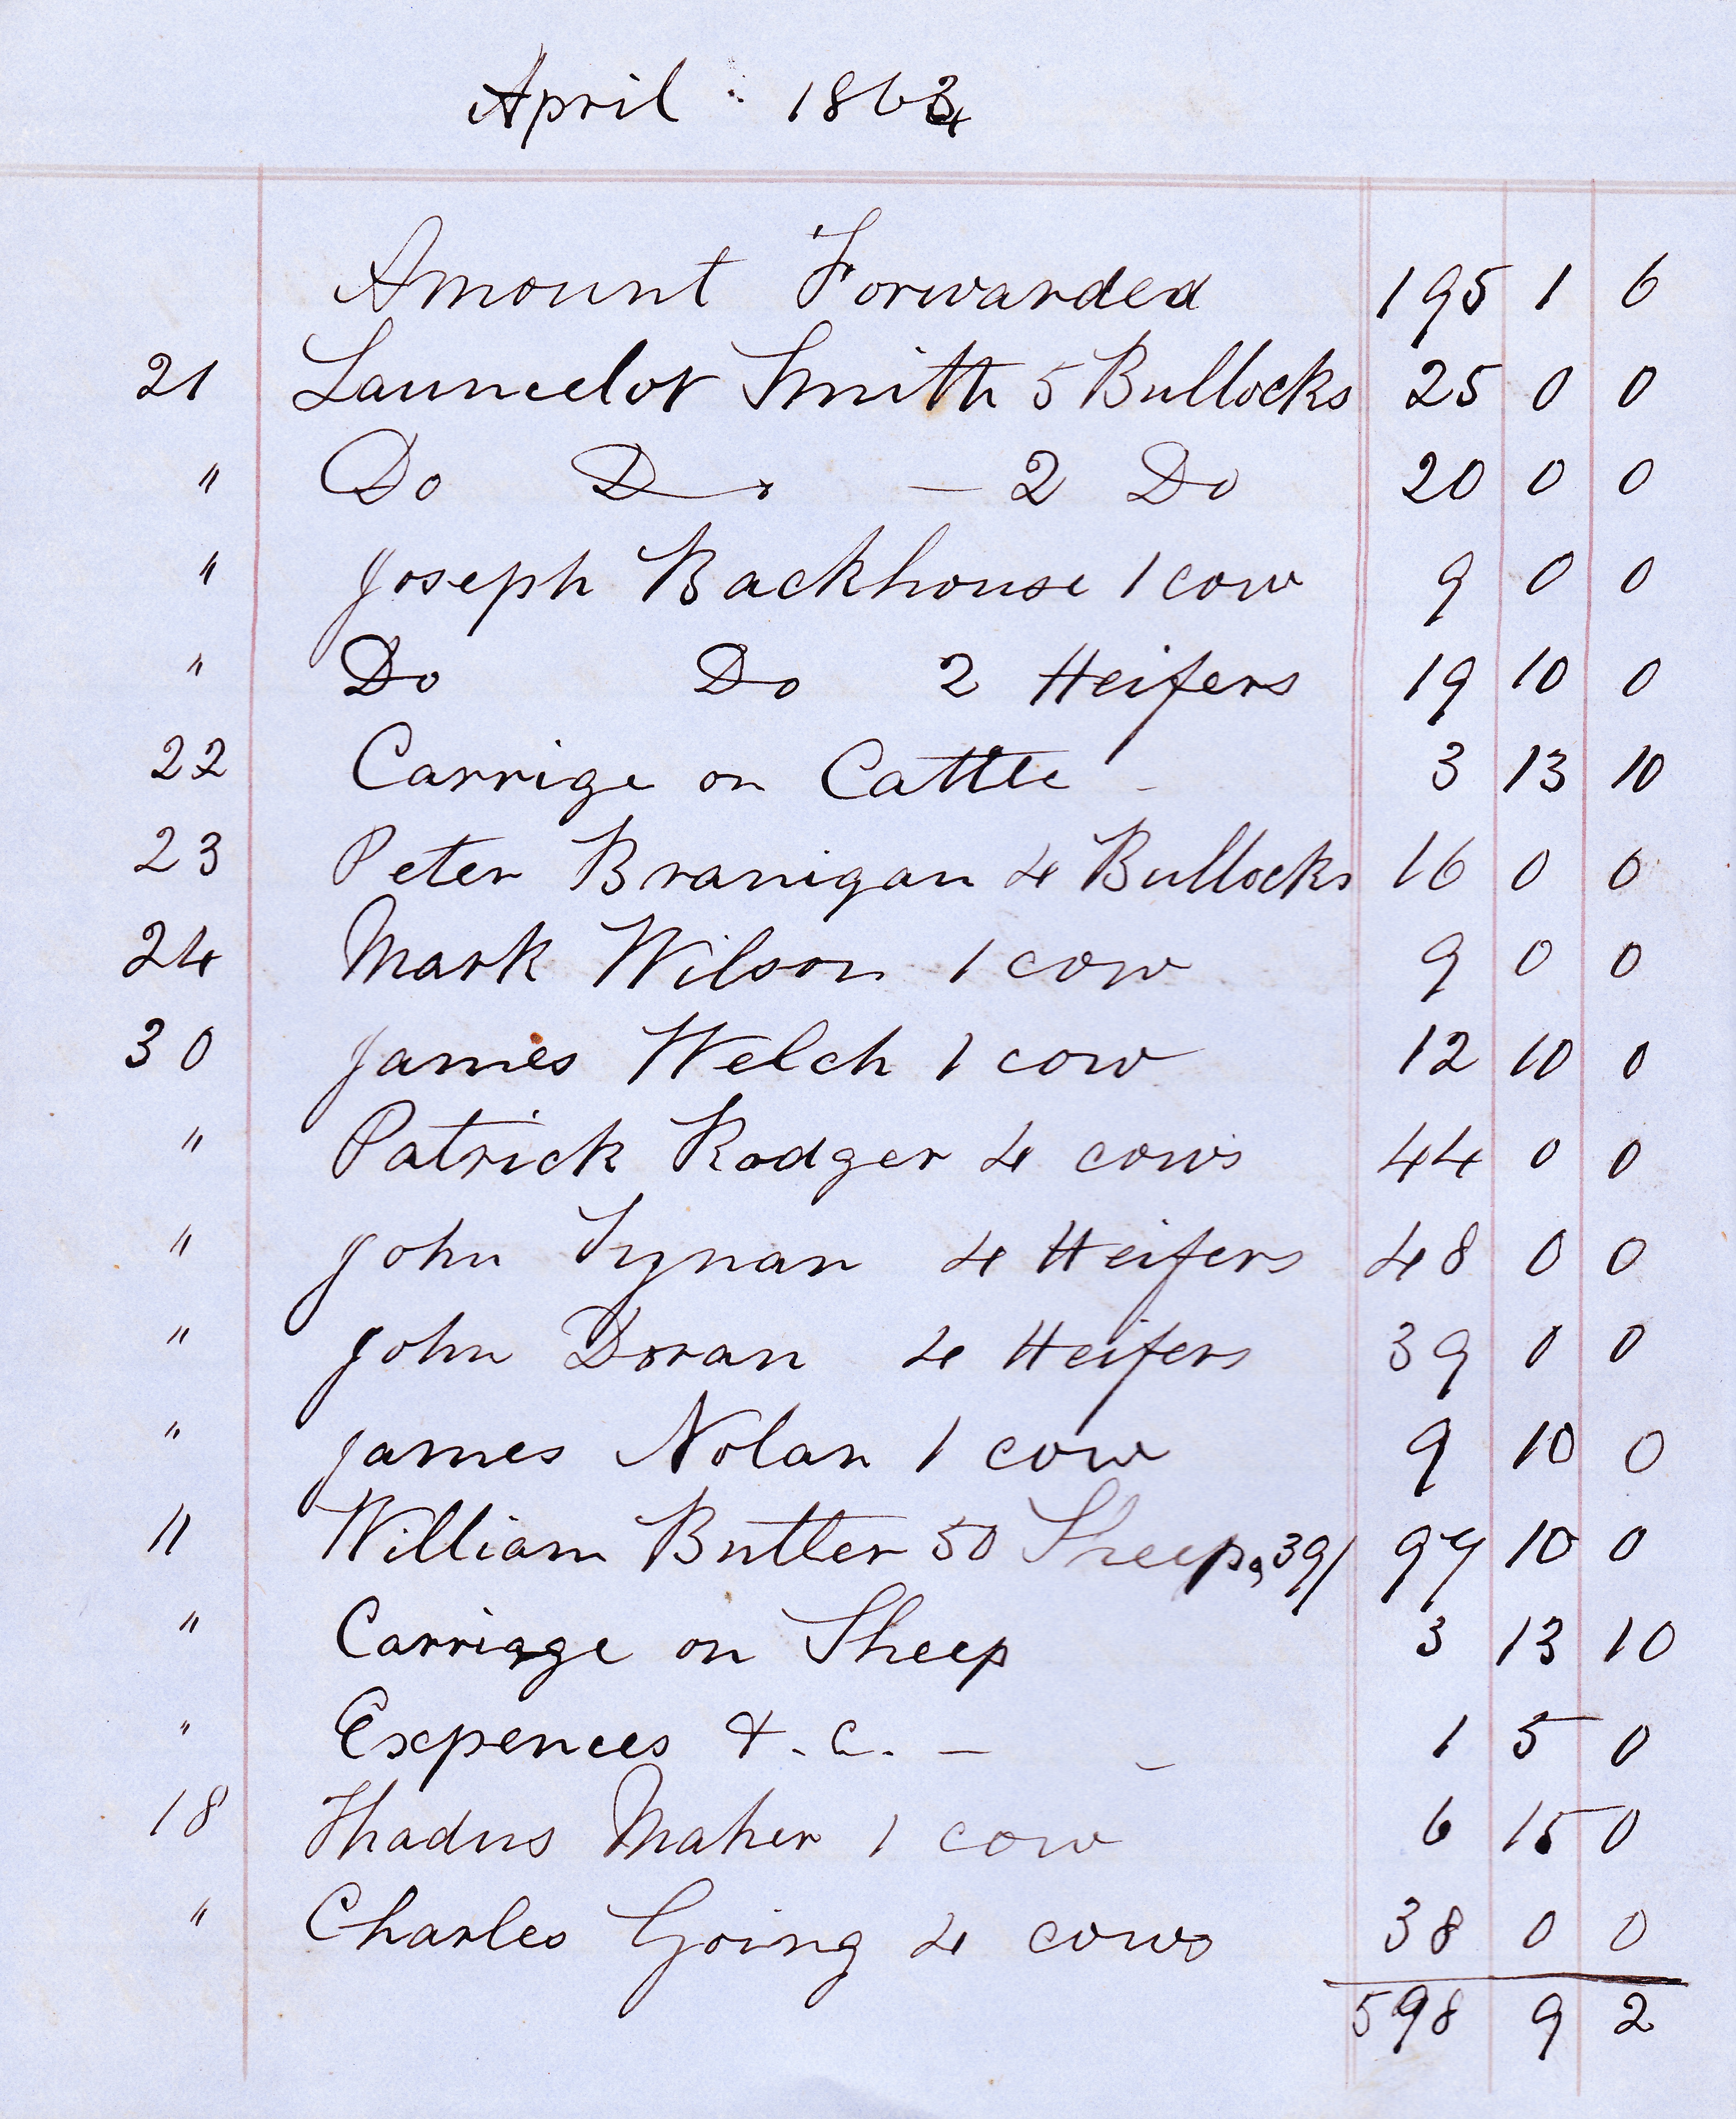 April : 1864
Amount Forwarded 195 1 6
21 Launcelot Smith 5 Bullocks 25 0 0
" Do Do — 2 Do 20 0 0
" Joseph Backhouse 1 cow 9 0 0
" Do Do 2 Heifers 19 10 0
22 Carrige on Cattle - 3 13 10
23 Peter Branigan 4 Bullocks 16 0 0
24 Mark Wilson 1 cow 9 0 0
30 James Welch 1 cow 12 10 0
" Patrick Rodger 4 cows 44 0 0
" John Tynan 4 Heifers 48 0 0
" John Doran 4 Heifers 39 0 0
" James Nolan 1 cow 9 10 0
" William Butler 50 Sheep, 39/ 97 10 0
" Carriage on Sheep 3 13 10
" Expences &.c. — - 1 5 0
18 Thadus Maher 1 cow 6 15 0
" Charles Going 4 cows 38 0 0
598 9 2